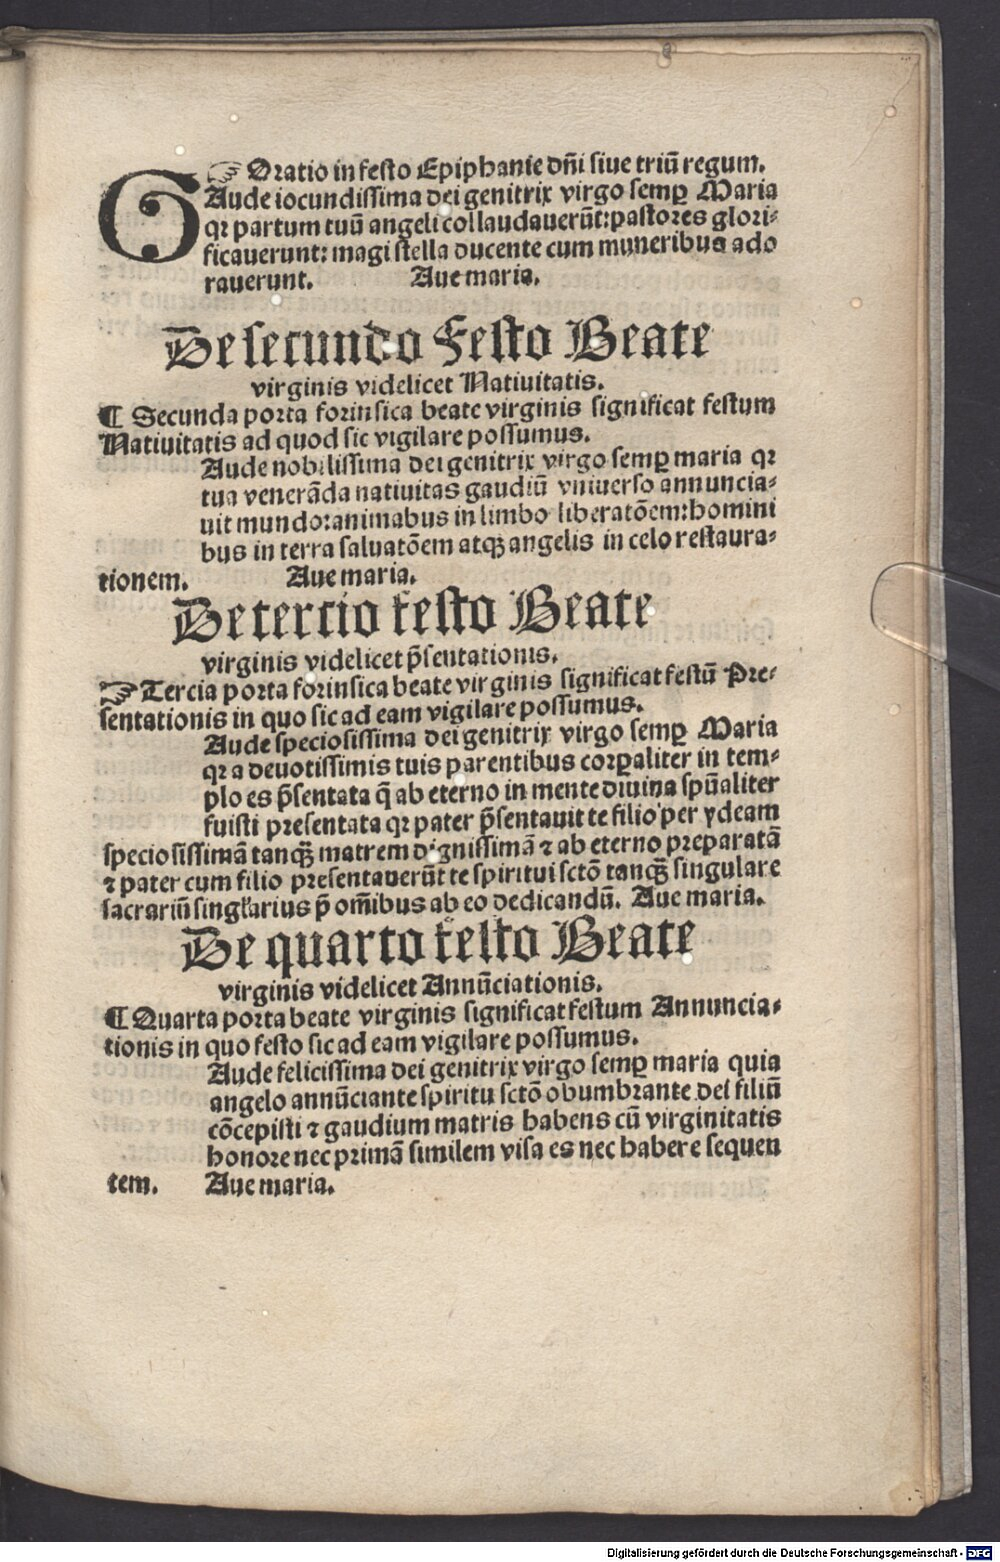 ☞ Oratio in festo Epiphanie dn̄i siue triū regum.
GAude iocundissima dei genitrix virgo semꝑ Maria
qꝛ partum tuū angeli collaudauerūt: pastores glori⸗
ficauerunt: magi stella ducente cum muneribus ado
rauerunt. Aue maria.
De secundo Festo Beate
virginis videlicet Natiuitatis.
¶ Secunda porta forinsica beate virginis significat festum
Natiuitatis ad quod sic vigilare possumus.
Aude nobilissima dei genitrix virgo semꝑ maria qꝛ
tua venerāda natiuitas gaudiū vniuerso annuncia⸗
uit mundo: animabus in limbo liberatōem: homini
bus in terra saluatōem atqꝫ angelis in celo restaura⸗
tionem. Aue maria.
De tercio festo Beate
virginis videlicet p̄sentationis.
☞ Tercia porta forinsica beate virginis significat festū Pre⸗
sentationis in quo sic ad eam vigilare possumus.
Aude speciosissima dei genitrix virgo semꝑ Maria
qꝛ a deuotissimis tuis parentibus corꝑaliter in tem⸗
plo es p̄sentata q̄ ab eterno in mente diuina spūaliter
fuisti presentata qꝛ pater p̄sentauit te filio per ydeam
speciosissimā tanqꝫ̄ matrem dignissimā ⁊ ab eterno preparatā
⁊ pater cum filio presentauerūt te spiritui sctō tanqꝫ̄ singulare
sacrariū singl̄arius p̄ om̄ibus ab eo dedicandū. Aue maria.
De quarto festo Beate
virginis videlicet Annūciationis.
¶ Quarta porta beate virginis significat festum Annuncia⸗
tionis in quo festo sic ad eam vigilare possumus.
Aude felicissima dei genitrix virgo semꝑ maria quia
angelo annūciante spiritu sctō obumbrante dei filiū
cōcepisti ⁊ gaudium matris habens cū virginitatis
honore nec primā similem visa es nec habere sequen
tem. Aue maria.
Digitalisierung gefördert durch die Deutsche Forschungsgemeinschaft - DFG